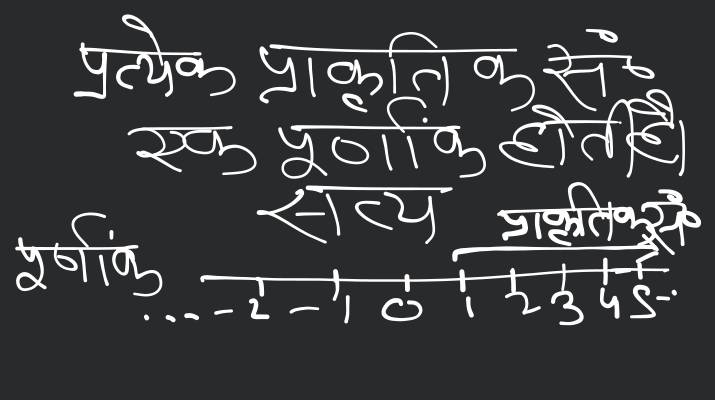 प्रत्येक प्राकृतिक सं०
एक पूर्णांक होती है।
सत्य
प्राकृतिक सं०
पूर्णांक
... -2 -1 0 1 2 3 4 5 ...